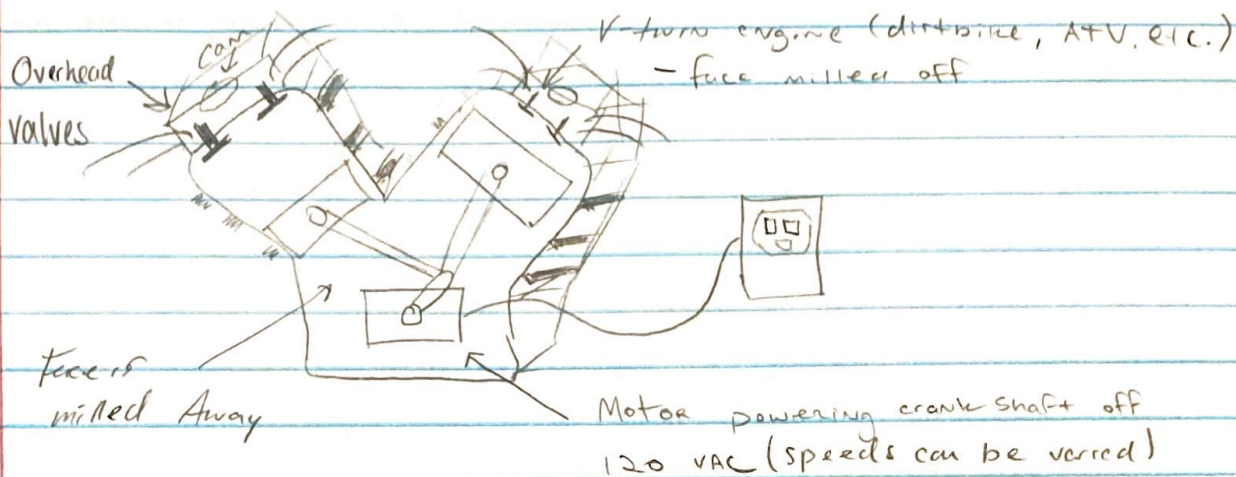 Overhead
valves
cam
V-twin engine (dirtbike, ATV, etc.)
- face milled off
Face is
milled Away
Motor powering crankshaft off
120 VAC (speeds can be varied)